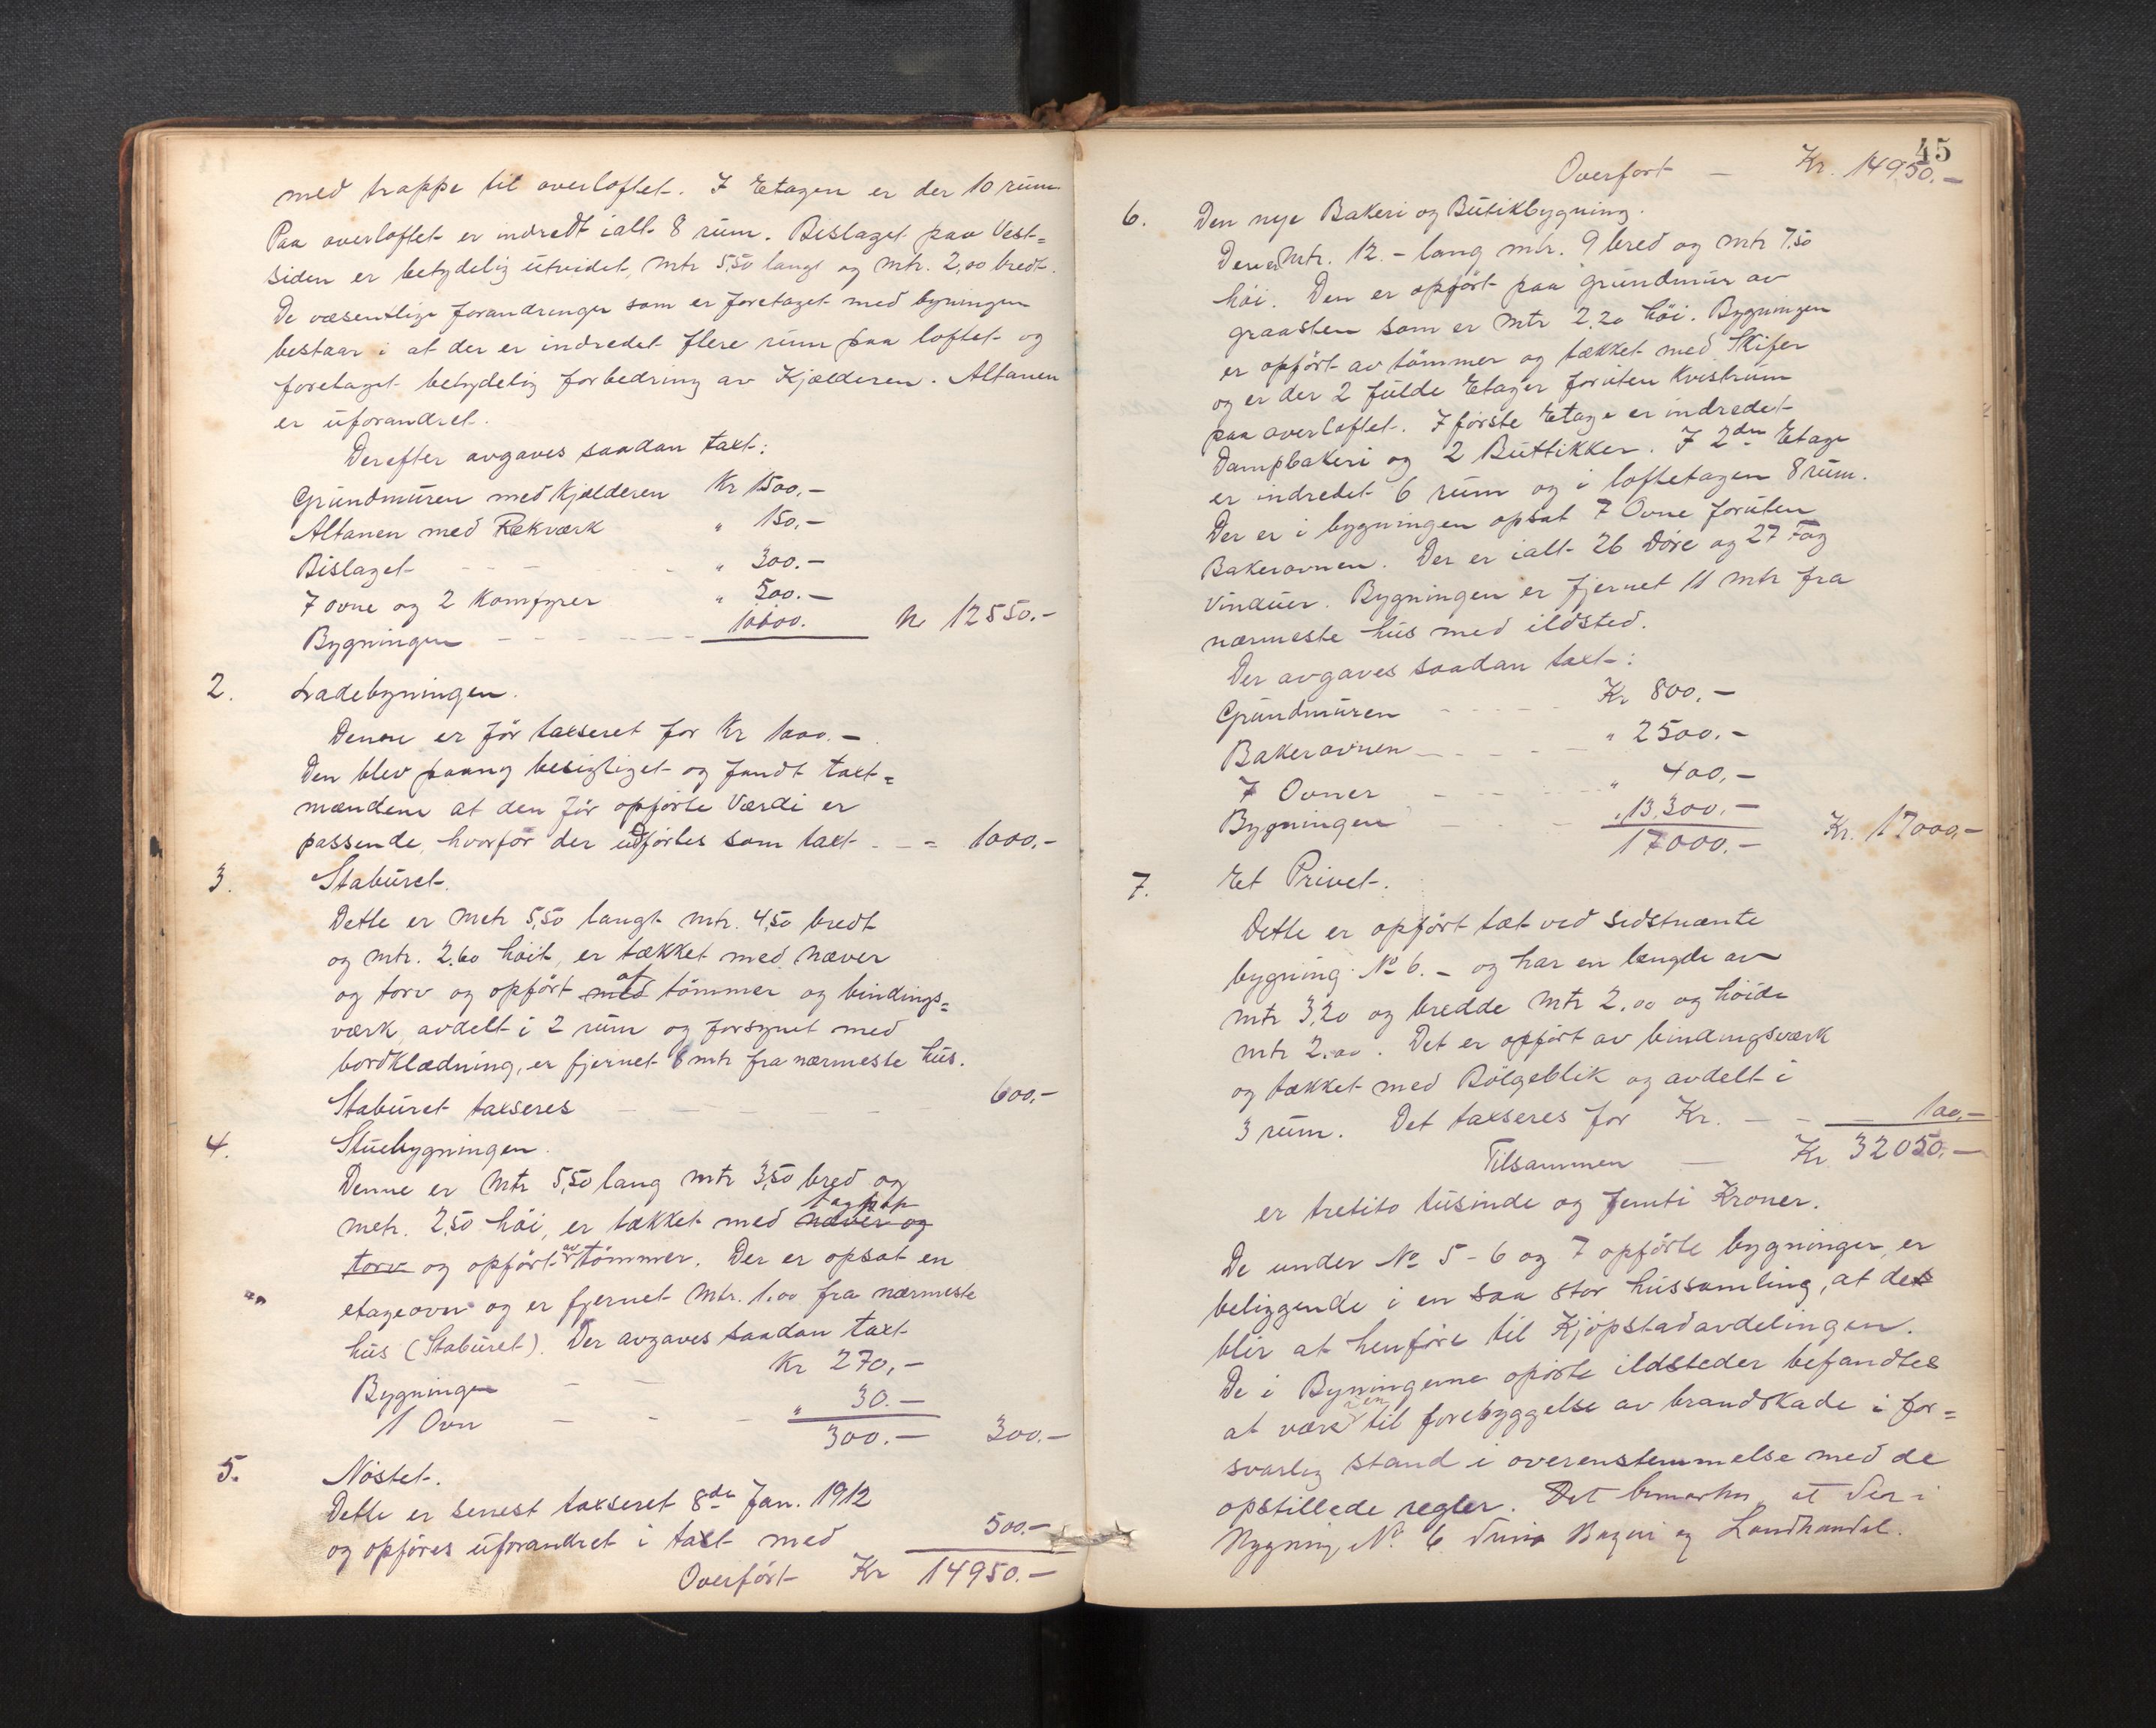 med trappe til overloftet. I Etagen er der 10 rum
Paa overloftet er indredt ialt 8 rum. Bislaget paa Vest=
siden er betydelig utvidet, mtr 5,50 langt og mtr. 2,00 bredt.
De væsentlige forandringer som er foretaget med byningen
bestaar i at der er indredet flere rum paa loftet og
foretaget betydelig forbedring av Kjælderen. Altanen
er uforandret.
Derefter avgaves saadan taxt:
Grundmuren med Kjælderen Kr 1500,-
Altanen med Rekværk " 150,-
Bislaget " 300.-
7 ovne og 2 Komfyrer " 500.-
Bygningen 10100. Kr 12550.-
2. Ladebyningen.
Denne er før taxseret for Kr 1000.-
Den blev paany besigtiget og fandt taxt=
mændene at den før opførte Værdi er
passende, hvorfor der udførtes som taxt - - = 1000,-
3. Staburet.
Dette er Metr 5,50 langt mtr. 4,50 bredt
og mtr. 2.60 høit, er tækket med næver
og torv og opført med af tømmer og bindings=
værk, avdelt i 2 rum og forsynet med
bordklædning, er fjernet 8 mtr fra nærmeste hus.
Staburet taxseres 600,-
4. Stuebygningen.
Denne er Mtr 5,50 lang mtr 3,50 bred og
metr. 2,50 høi, er tækket med næver og tagpap
torv og opført av tømmer. Der er opsat en
etageovn og er fjernet Mtr. 1.00 fra nærmeste
hus (Staburet). Der avgaves saadan taxt
Bygningen Kr 270,-
1 Ovn " 30.-
300.- 300.-
5. Nøstet.
Dette er senest taxseret 8de Jan. 1912
og opføres uforandret i taxt med 500.-
Overført Kr 14950.-
45
Overført - Kr. 14950.-
6. Den nye Bakeri og Butikbygning.
Den er Mtr. 12.- lang mtr. 9 bred og mtr 7,50
høi. Den er opført paa grundmur av
graasten som er mtr 2,20 høi. Bygningen
er opført av tømmer og tækket med Skifer
og er der 2 fulde Etager foruten Kvistrum
paa overloftet. I første Etage er indredet
Dampbakeri og 2 Buttikker. I 2den Etage
er indredet 6 rum og i loftetagen 8 rum.
Der er i bygningen opsat 7 Ovne foruten
Bakerovnen. Der er ialt 26 Døre og 27 Fag
Vinduer. Bygningen er fjernet 11 mtr fra
nærmeste hus med ildsted.
Der avgaves saadan taxt:
Grundmuren Kr 800,-
Bakerovnen " 2500.-
7 Ovner " 400,-
Bygningen " 13,300.-
17000.- Kr. 17000,-
7. Et Privet.
Dette er opført tæt ved sidstnævnte
bygning No 6.- og har en længde av
mtr 3,20 og bredde mtr 2,00 og høide
mtr 2.00. Det er opført av bindingsværk
og tækket med Bølgeblik og avdelt i
3 rum. Det taxseres for Kr. - - - 100,-
Tilsammen - Kr 32050.-
er tretito tusinde og femti Kroner.
De under No 5-6 og 7 opførte bygninger, er
beliggende i en saa stor hussamling, at det
blir at henføre til Kjøpstadavdelingen.
De i Byningerne opførte ildsteder befandtes
at være til forebyggelse av brandskade i for=
svarlig stand i overenstemmelse med de
opstillede regler. Det bemærkes at der i
Bygning No. 6 drives Bageri og Landhandel.